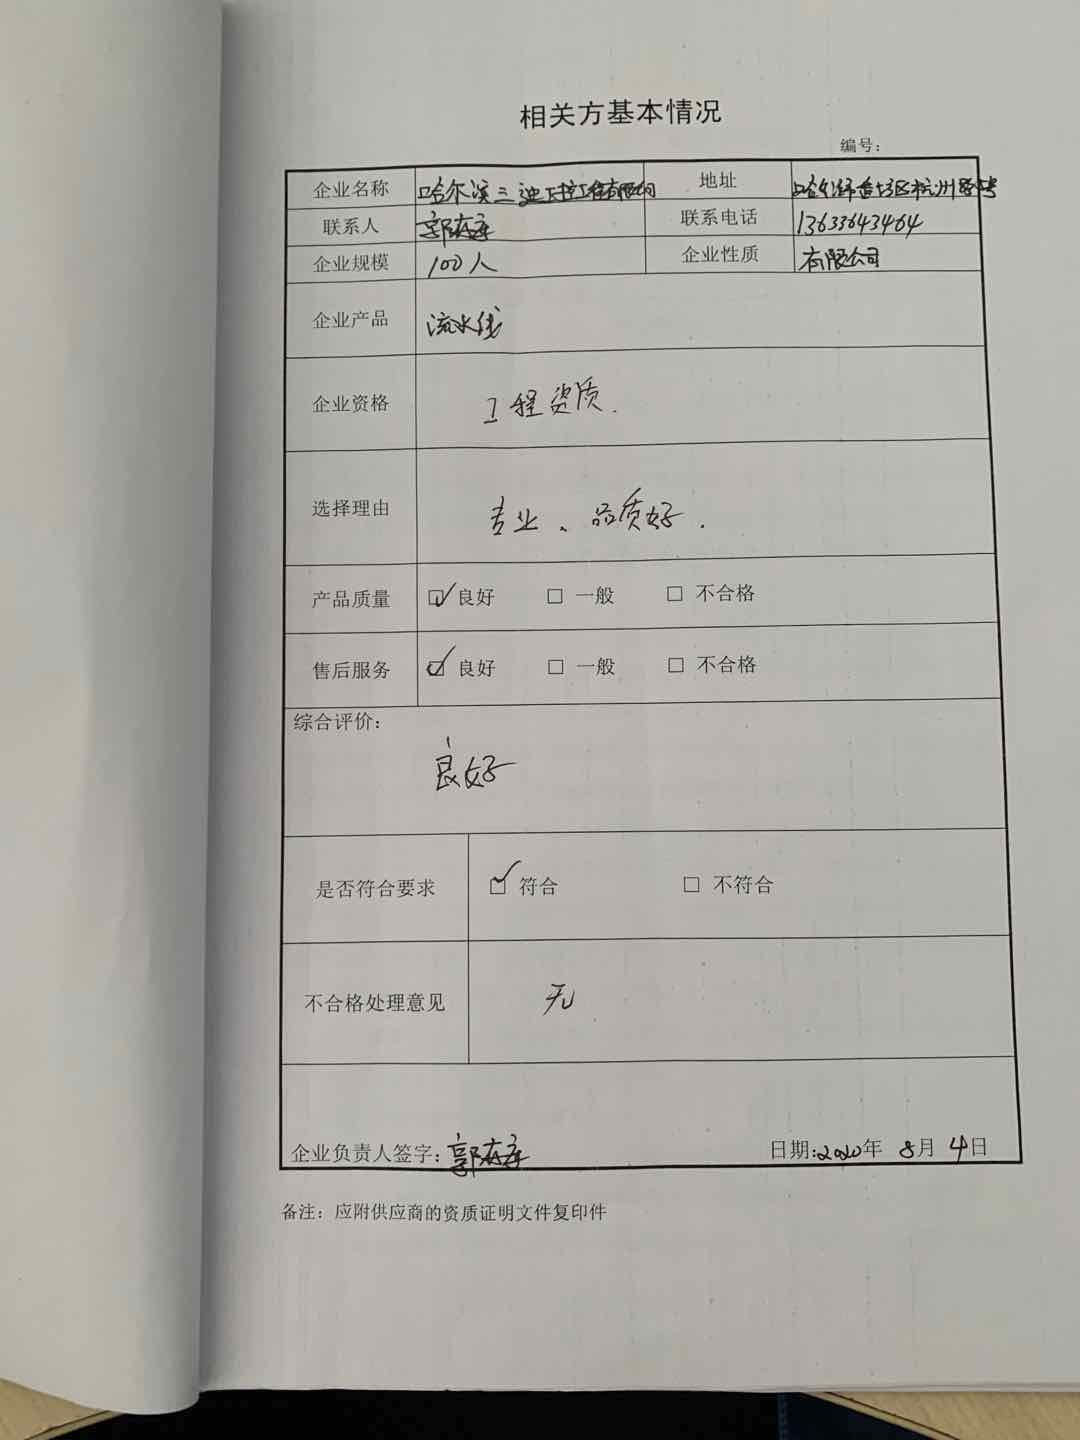 相关方基本情况
编号：
企业名称 哈尔滨三迪工控工程有限公司 地址 哈尔滨市 区杭州路 号
联系人 郭 联系电话 13633643464
企业规模 100人 企业性质 有限公司
企业产品 流水线
企业资格 工程资质.
选择理由 专业、品质好.
产品质量 ☑ 良好 □ 一般 □ 不合格
售后服务 ☑ 良好 □ 一般 □ 不合格
综合评价：
良好
是否符合要求 ☑ 符合 □ 不符合
不合格处理意见 无
企业负责人签字：郭 日期：2020年 8月 4日
备注：应附供应商的资质证明文件复印件